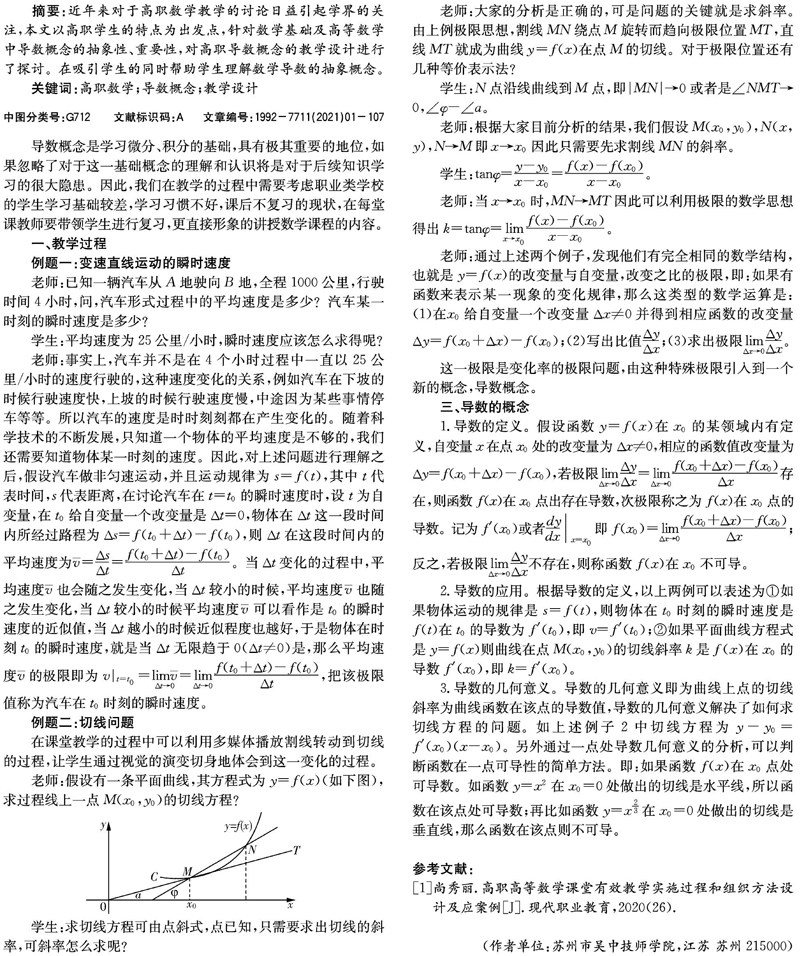 摘要:近年来对于高职数学教学的讨论日益引起学界的关
注,本文以高职学生的特点为出发点,针对数学基础及高等数学
中导数概念的抽象性、重要性,对高职导数概念的教学设计进行
了探讨。在吸引学生的同时帮助学生理解数学导数的抽象概念。
关键词:高职数学;导数概念;教学设计
中图分类号:G712 文献标识码:A 文章编号:1992-7711(2021)01-107
导数概念是学习微分、积分的基础,具有极其重要的地位,如
果忽略了对于这一基础概念的理解和认识将是对于后续知识学
习的很大隐患。因此,我们在教学的过程中需要考虑职业类学校
的学生学习基础较差,学习习惯不好,课后不复习的现状,在每堂
课教师要带领学生进行复习,更直接形象的讲授数学课程的内容。
一、教学过程
例题一:变速直线运动的瞬时速度
老师:已知一辆汽车从 A 地驶向 B 地,全程 1000 公里,行驶
时间 4 小时,问,汽车形式过程中的平均速度是多少?汽车某一
时刻的瞬时速度是多少?
学生:平均速度为 25 公里/小时,瞬时速度应该怎么求得呢?
老师:事实上,汽车并不是在 4 个小时过程中一直以 25 公
里/小时的速度行驶的,这种速度变化的关系,例如汽车在下坡的
时候行驶速度快,上坡的时候行驶速度慢,中途因为某些事情停
车等等。所以汽车的速度是时时刻刻都在产生变化的。随着科
学技术的不断发展,只知道一个物体的平均速度是不够的,我们
还需要知道物体某一时刻的速度。因此,对上述问题进行理解之
后,假设汽车做非匀速运动,并且运动规律为 s=f(t),其中 t 代
表时间,s 代表距离,在讨论汽车在 t=t₀ 的瞬时速度时,设 t 为自
变量,在 t₀ 给自变量一个改变量是 Δt=0,物体在 Δt 这一段时间
内所经过路程为 Δs=f(t₀+Δt)-f(t₀),则 Δt 在这段时间内的
平均速度为v̅=Δs/Δt=f(t₀+Δt)-f(t₀)/Δt。当 Δt 变化的过程中,平
均速度v̅ 也会随之发生变化,当 Δt 较小的时候,平均速度v̅ 也随
之发生变化,当 Δt 较小的时候平均速度v̅ 可以看作是 t₀ 的瞬时
速度的近似值,当 Δt 越小的时候近似程度也越好,于是物体在时
刻 t₀ 的瞬时速度,就是当 Δt 无限趋于 0(Δt≠0)是,那么平均速
度v̅ 的极限即为 v|t=t₀=lim Δt→0 v̅=lim Δt→0 f(t₀+Δt)-f(t₀)/Δt,把该极限
值称为汽车在 t₀ 时刻的瞬时速度。
例题二:切线问题
在课堂教学的过程中可以利用多媒体播放割线转动到切线
的过程,让学生通过视觉的演变切身地体会到这一变化的过程。
老师:假设有一条平面曲线,其方程式为 y=f(x)(如下图),
求过程线上一点 M(x₀,y₀)的切线方程?
y
y=f(x)
N
T
C
M
a
φ
0
x₀
x
学生:求切线方程可由点斜式,点已知,只需要求出切线的斜
率,可斜率怎么求呢?
老师:大家的分析是正确的,可是问题的关键就是求斜率。
由上例极限思想,割线 MN 绕点 M 旋转而趋向极限位置 MT,直
线 MT 就成为曲线 y=f(x)在点 M 的切线。对于极限位置还有
几种等价表示法?
学生:N 点沿线曲线到 M 点,即|MN|→0 或者是∠NMT→
0,∠φ-∠a。
老师:根据大家目前分析的结果,我们假设 M(x₀,y₀),N(x,
y),N→M 即 x→x₀ 因此只需要先求割线 MN 的斜率。
学生:tanφ=y-y₀/x-x₀=f(x)-f(x₀)/x-x₀。
老师:当 x→x₀ 时,MN→MT 因此可以利用极限的数学思想
得出 k=tanφ=lim x→x₀ f(x)-f(x₀)/x-x₀。
老师:通过上述两个例子,发现他们有完全相同的数学结构,
也就是 y=f(x)的改变量与自变量,改变之比的极限,即:如果有
函数来表示某一现象的变化规律,那么这类型的数学运算是:
(1)在x₀ 给自变量一个改变量 Δx≠0 并得到相应函数的改变量
Δy=f(x₀+Δx)-f(x₀);(2)写出比值Δy/Δx;(3)求出极限lim Δx→0 Δy/Δx。
这一极限是变化率的极限问题,由这种特殊极限引入到一个
新的概念,导数概念。
三、导数的概念
1.导数的定义。假设函数 y=f(x)在 x₀ 的某领域内有定
义,自变量 x 在点 x₀ 处的改变量为 Δx≠0,相应的函数值改变量为
Δy=f(x₀+Δx)-f(x₀),若极限 lim Δx→0 Δy/Δx=lim Δx→0 f(x₀+Δx)-f(x₀)/Δx存
在,则函数 f(x)在 x₀ 点出存在导数,次极限称之为 f(x)在 x₀ 点的
导数。记为 f′(x₀)或者dy/dx|x=x₀ 即 f(x₀)=lim Δx→0 f(x₀+Δx)-f(x₀)/Δx;
反之,若极限 lim Δx→0 Δy/Δx不存在,则称函数 f(x)在 x₀ 不可导。
2.导数的应用。根据导数的定义,以上两例可以表述为①如
果物体运动的规律是 s=f(t),则物体在 t₀ 时刻的瞬时速度是
f(t)在 t₀ 的导数为 f′(t₀),即 v=f′(t₀);②如果平面曲线方程式
是 y=f(x)则曲线在点 M(x₀,y₀)的切线斜率 k 是 f(x)在 x₀ 的
导数 f′(x₀),即 k=f′(x₀)。
3.导数的几何意义。导数的几何意义即为曲线上点的切线
斜率为曲线函数在该点的导数值,导数的几何意义解决了如何求
切线方程的问题。如上述例子 2 中切线方程为 y-y₀=
f′(x₀)(x-x₀)。另外通过一点处导数几何意义的分析,可以判
断函数在一点可导性的简单方法。即:如果函数 f(x)在 x₀ 点处
可导数。如函数 y=x² 在 x₀=0 处做出的切线是水平线,所以函
数在该点处可导数;再比如函数 y=x^(2/3) 在 x₀=0 处做出的切线是
垂直线,那么函数在该点则不可导。
参考文献:
[1]尚秀丽.高职高等数学课堂有效教学实施过程和组织方法设
计及应案例[J].现代职业教育,2020(26).
(作者单位:苏州市吴中技师学院,江苏 苏州 215000)